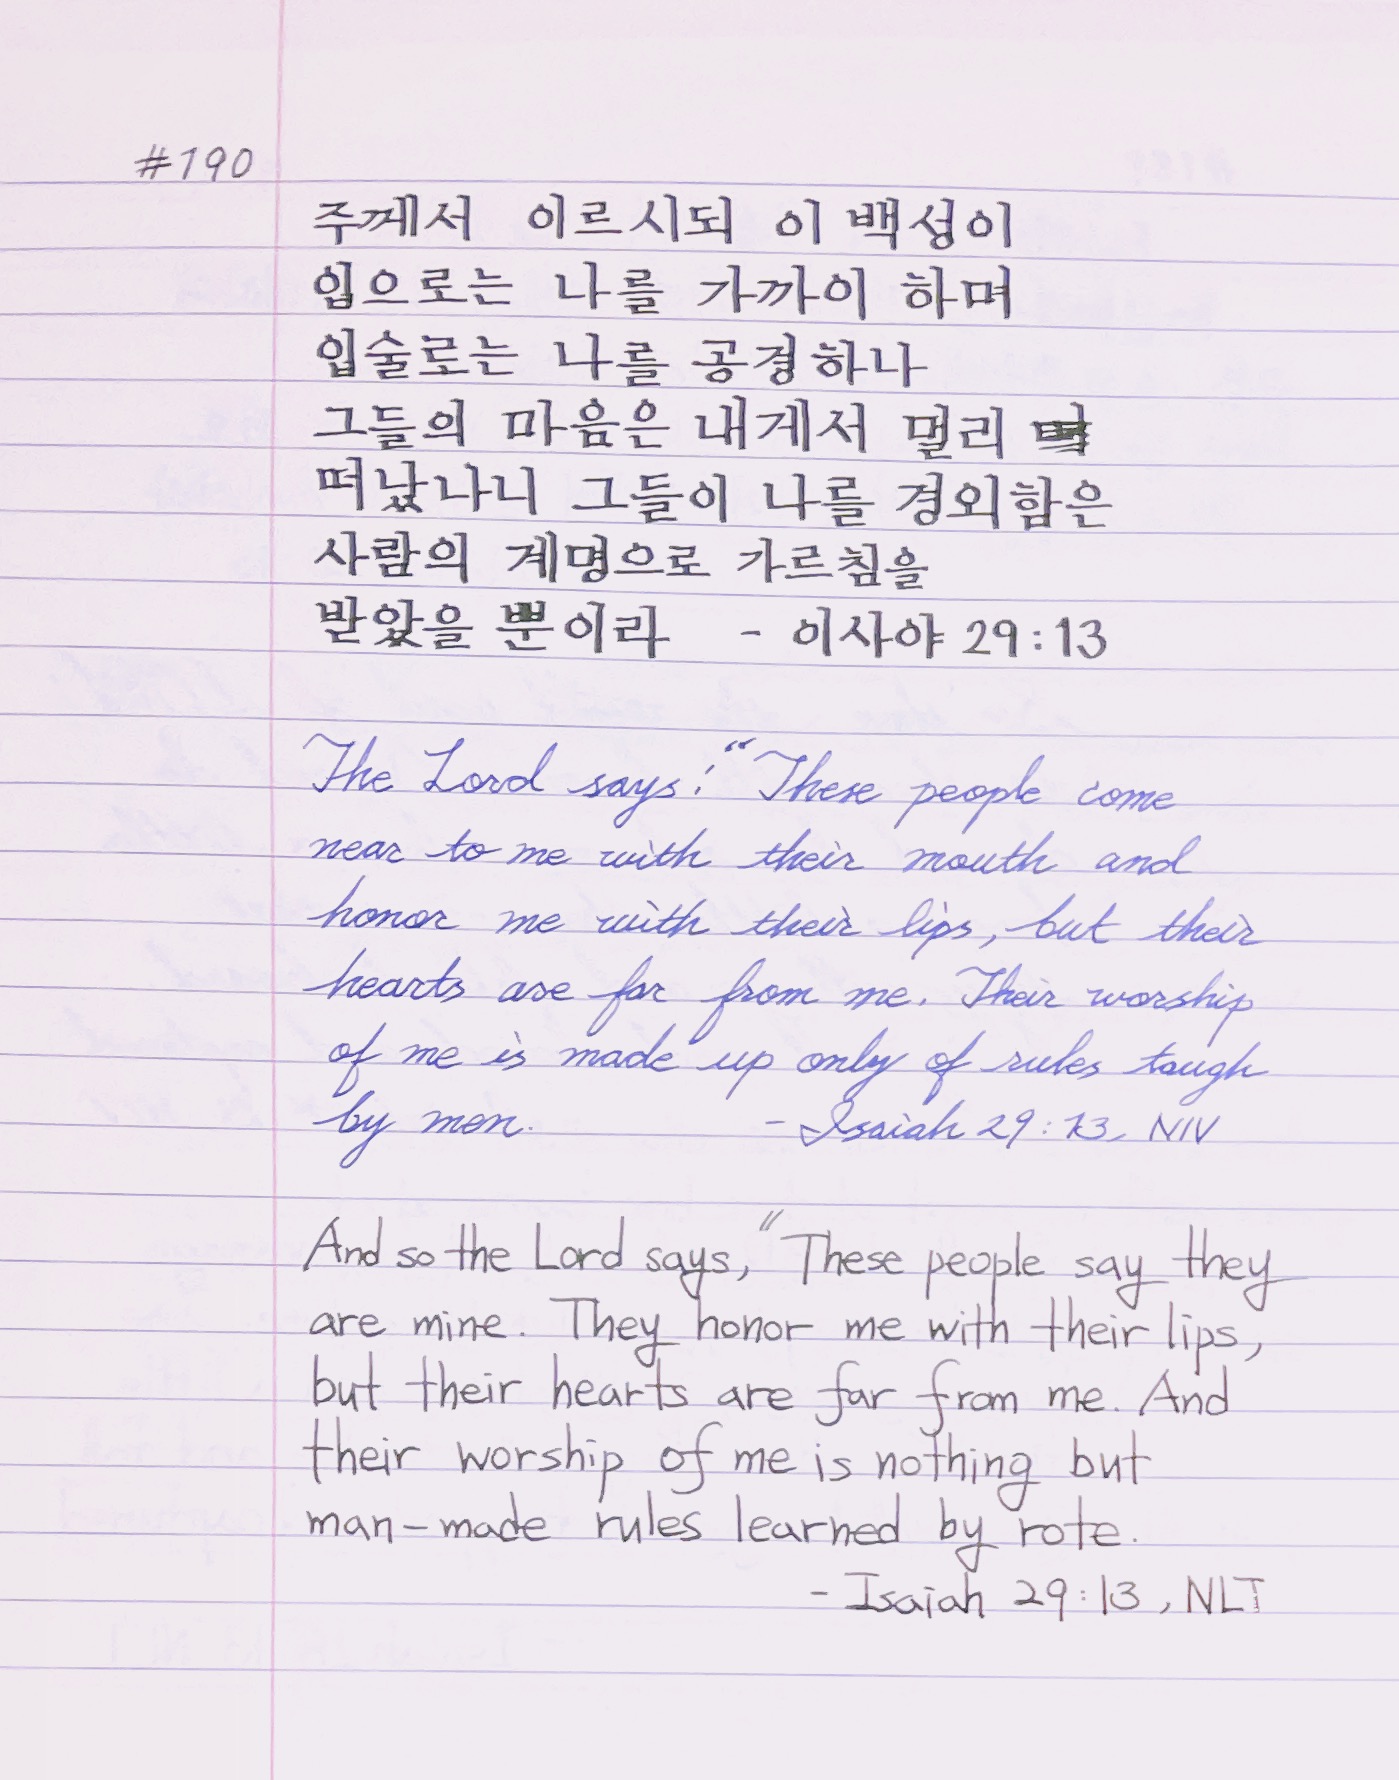 #190
주께서 이르시되 이 백성이
입으로는 나를 가까이 하며
입술로는 나를 공경하나
그들의 마음은 내게서 멀리
떠났나니 그들이 나를 경외함은
사람의 계명으로 가르침을
받았을 뿐이라 - 이사야 29:13
The Lord says: "These people come
near to me with their mouth and
honor me with their lips, but their
hearts are far from me. Their worship
of me is made up only of rules taugh
by men. - Isaiah 29:13, NIV
And so the Lord says, "These people say they
are mine. They honor me with their lips,
but their hearts are far from me. And
their worship of me is nothing but
man-made rules learned by rote.
- Isaiah 29:13, NLT